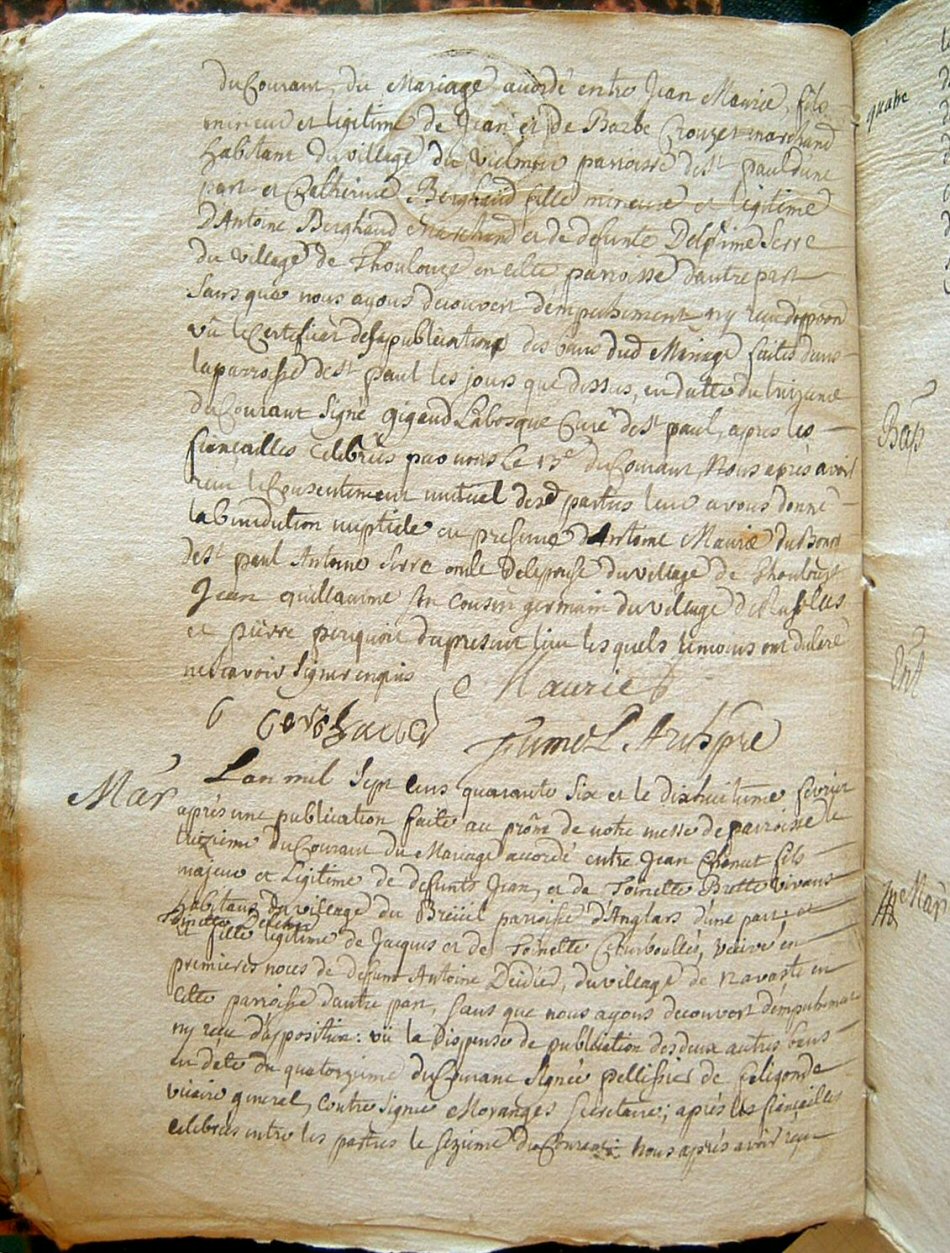 du Courant, du Mariage accordé entre Jean Maurie, fils
mineur et legitime de Jean et de Barbe Crouzet marchand
habitant du village du Vielmur parroisse de St paul d'une
part et Catherine Berghaud fille mineure et legitime
D'Antoine Berghaud Marchand et de defunte Delphine Serre
du village de Thoulouze en cette parroisse d'autre part
Sans que nous ayons decouvert d'empechement ny reçu d'opposon
vû le Certificat de la publication des bans dud Mariage faites dans
la parroisse de St paul les jours que dessus, en datte du treizieme
du Courant Signé Gigaud Labosque Curé de St paul, apres les
fiançailles celebrées par nous le 13e du Courant, Nous aprés avoir
reçu le Consentement mutuel desd parties leur avons donné
la benediction nuptiale en presence d'Antoine Maurie du Bourg
de St paul Antoine Serre oncle de l'epouse du village de Thoulouze
Jean Guillaume Son Cousin germain du village de
et pierre du present lieu lesquels temoins ont declaré
ne scavoir signer enquis
Maurie
Fumel Archpre
Mar
L'an mil Sept cens quarante Six et le dixhuitieme fevrier
aprés une publication faite au prône de notre messe de parroisse le
treizieme du Courant du Mariage accordé entre Jean Chanut fils
majeur et Legitime de defunts Jean, et de Toinette Brette vivans
habitans du village du Breüil parroisse d'Anglars d'une part, et
Toinette
et fille legitime de Jacques et de Toinette Courboulles, veuve en
premieres noces de defunt Antoine Deidier, du village de Navaste en
cette parroisse d'autre part, sans que nous ayons decouvert d'empechemat
ny reçu d'opposition: vû la Dispense de publication des deux autres bans
en date du quatorzieme du Courant Signée pellissier de feligonde
vicaire general, contre signée Moranges secretaire; aprés les fiançailles
celebrées entre les parties le sezieme du Courant: Nous aprés avoir reçu
quabe
Bap
Ent
Mar